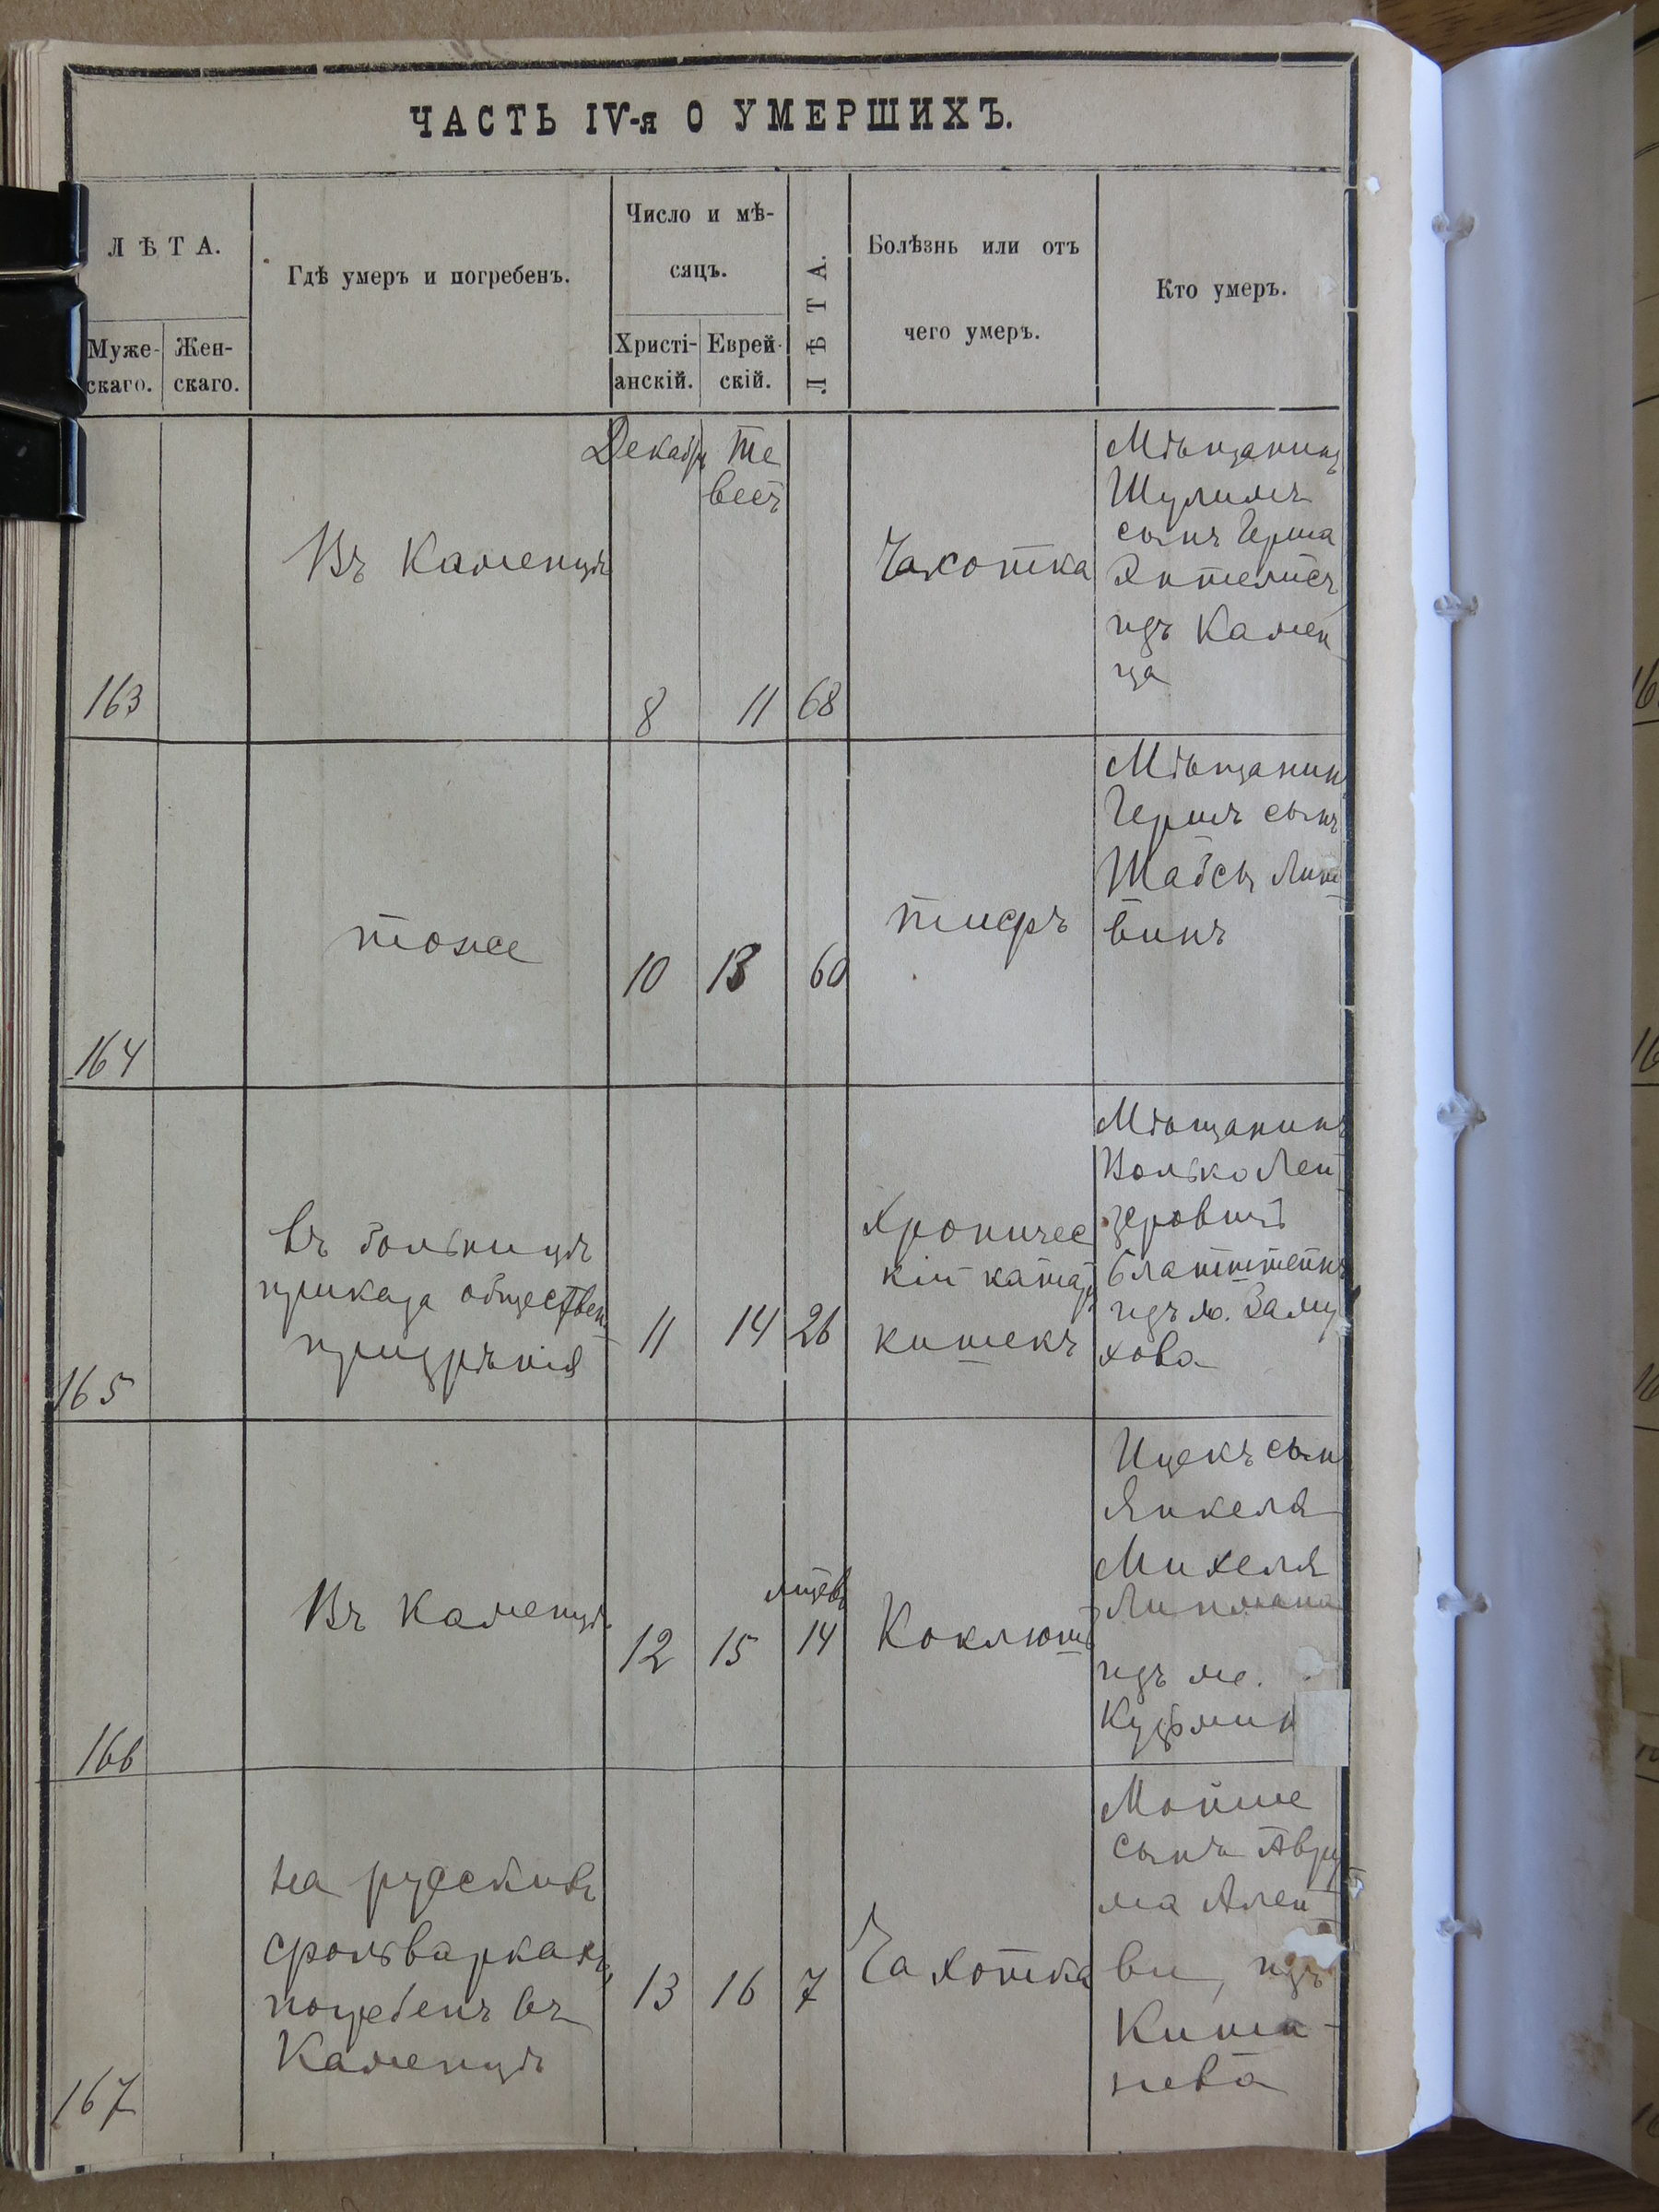 ЧАСТЬ IV-я О УМЕРШИХЪ.
ЛѢТА.
Муже-
скаго.
Жен-
скаго.
Гдѣ умеръ и погребенъ.
Число и мѣ-
сяцъ.
Христі-
анскій.
Еврей-
скій.
ЛѢТА.
Болѣзнь или отъ
чего умеръ.
Кто умеръ.
163
Въ Каменцѣ
Декабр
8
Те
весъ
11
68
Чахотка
Мѣщанинъ
Шулимъ
сынъ Герша
изъ Камен
ца
164
тоже
10
13
60
тифъ
Мѣщанин
Гершъ сынъ
Шабсы Лит
винъ
165
въ больницѣ
приказа обществен
призрѣнія
11
14
26
Хроничес
кій катар
кишекъ
Мѣщанинъ
Волько Лей
зеровичъ
изъ м. Замѣ
хова
166
Въ Каменцѣ
12
15
14
Коклюшъ
Ицекъ сын
Янкеля
Михеля
Липмана
изъ м.
167
на русскихъ
фольваркахъ
погребенъ въ
Каменцѣ
13
16
7
Чахотка
Мойше
сынъ Авру
ма
изъ
Киши-
нева